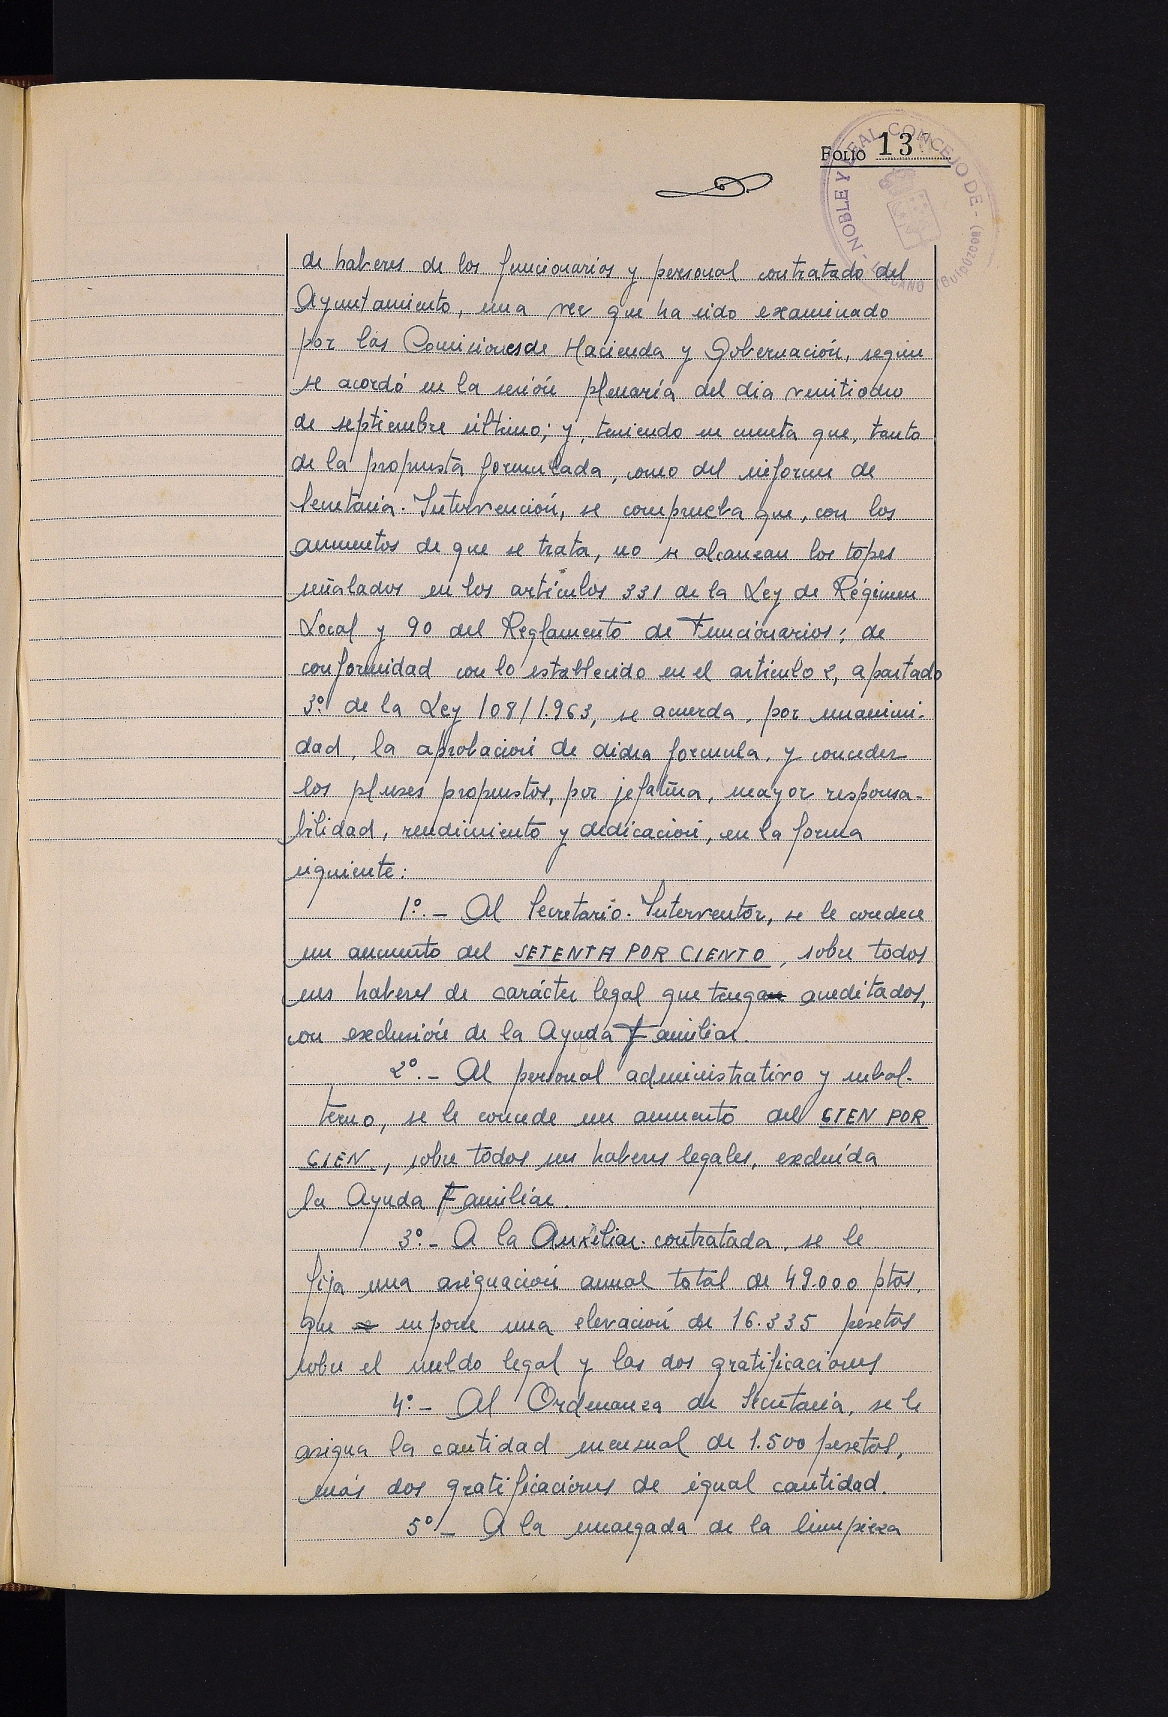 FOLIO 13
NOBLE Y LEAL CONCEJO DE - (Guipúzcoa)
de haberes de los funcionarios y personal contratado del
Ayuntamiento, una vez que ha sido examinado
por las Comisiones de Hacienda y Gobernación, según
se acordó en la sesión plenaria del dia veintiocho
de septiembre último; y, teniendo en cuenta que, tanto
de la propuesta formulada, como del informe de
Secretaría-Intervención, se comprueba que, con los
aumentos de que se trata, no se alcanzan los topes
señalados en los artículos 331 de la Ley de Régimen
Local y 90 del Reglamento de Funcionarios; de
conformidad con lo establecido en el artículo 2, apartado
3º de la Ley 108/1.963, se acuerda, por unanimi-
dad, la aprobación de dicha formula, y conceder
los pluses propuestos, por jefatura, mayor responsa-
bilidad, rendimiento y dedicación, en la forma
siguiente:
1º.- Al Secretario-Interventor, se le concede
un aumento del SETENTA POR CIENTO, sobre todos
sus haberes de carácter legal que tenga acreditados,
con exclusión de la Ayuda Familiar.
2º.- Al personal administrativo y subal-
terno, se le concede un aumento del CIEN POR
CIEN, sobre todos sus haberes legales, excluída
la Ayuda Familiar.
3º.- A la Auxiliar contratada, se le
fija una asignación anual total de 49.000 ptas,
que supone una elevación de 16.335 pesetas
sobre el sueldo legal y las dos gratificaciones
4º.- Al Ordenanza de Secretaría, se le
asigna la cantidad mensual de 1.500 pesetas,
más dos gratificaciones de igual cantidad.
5º.- A la encargada de la limpieza